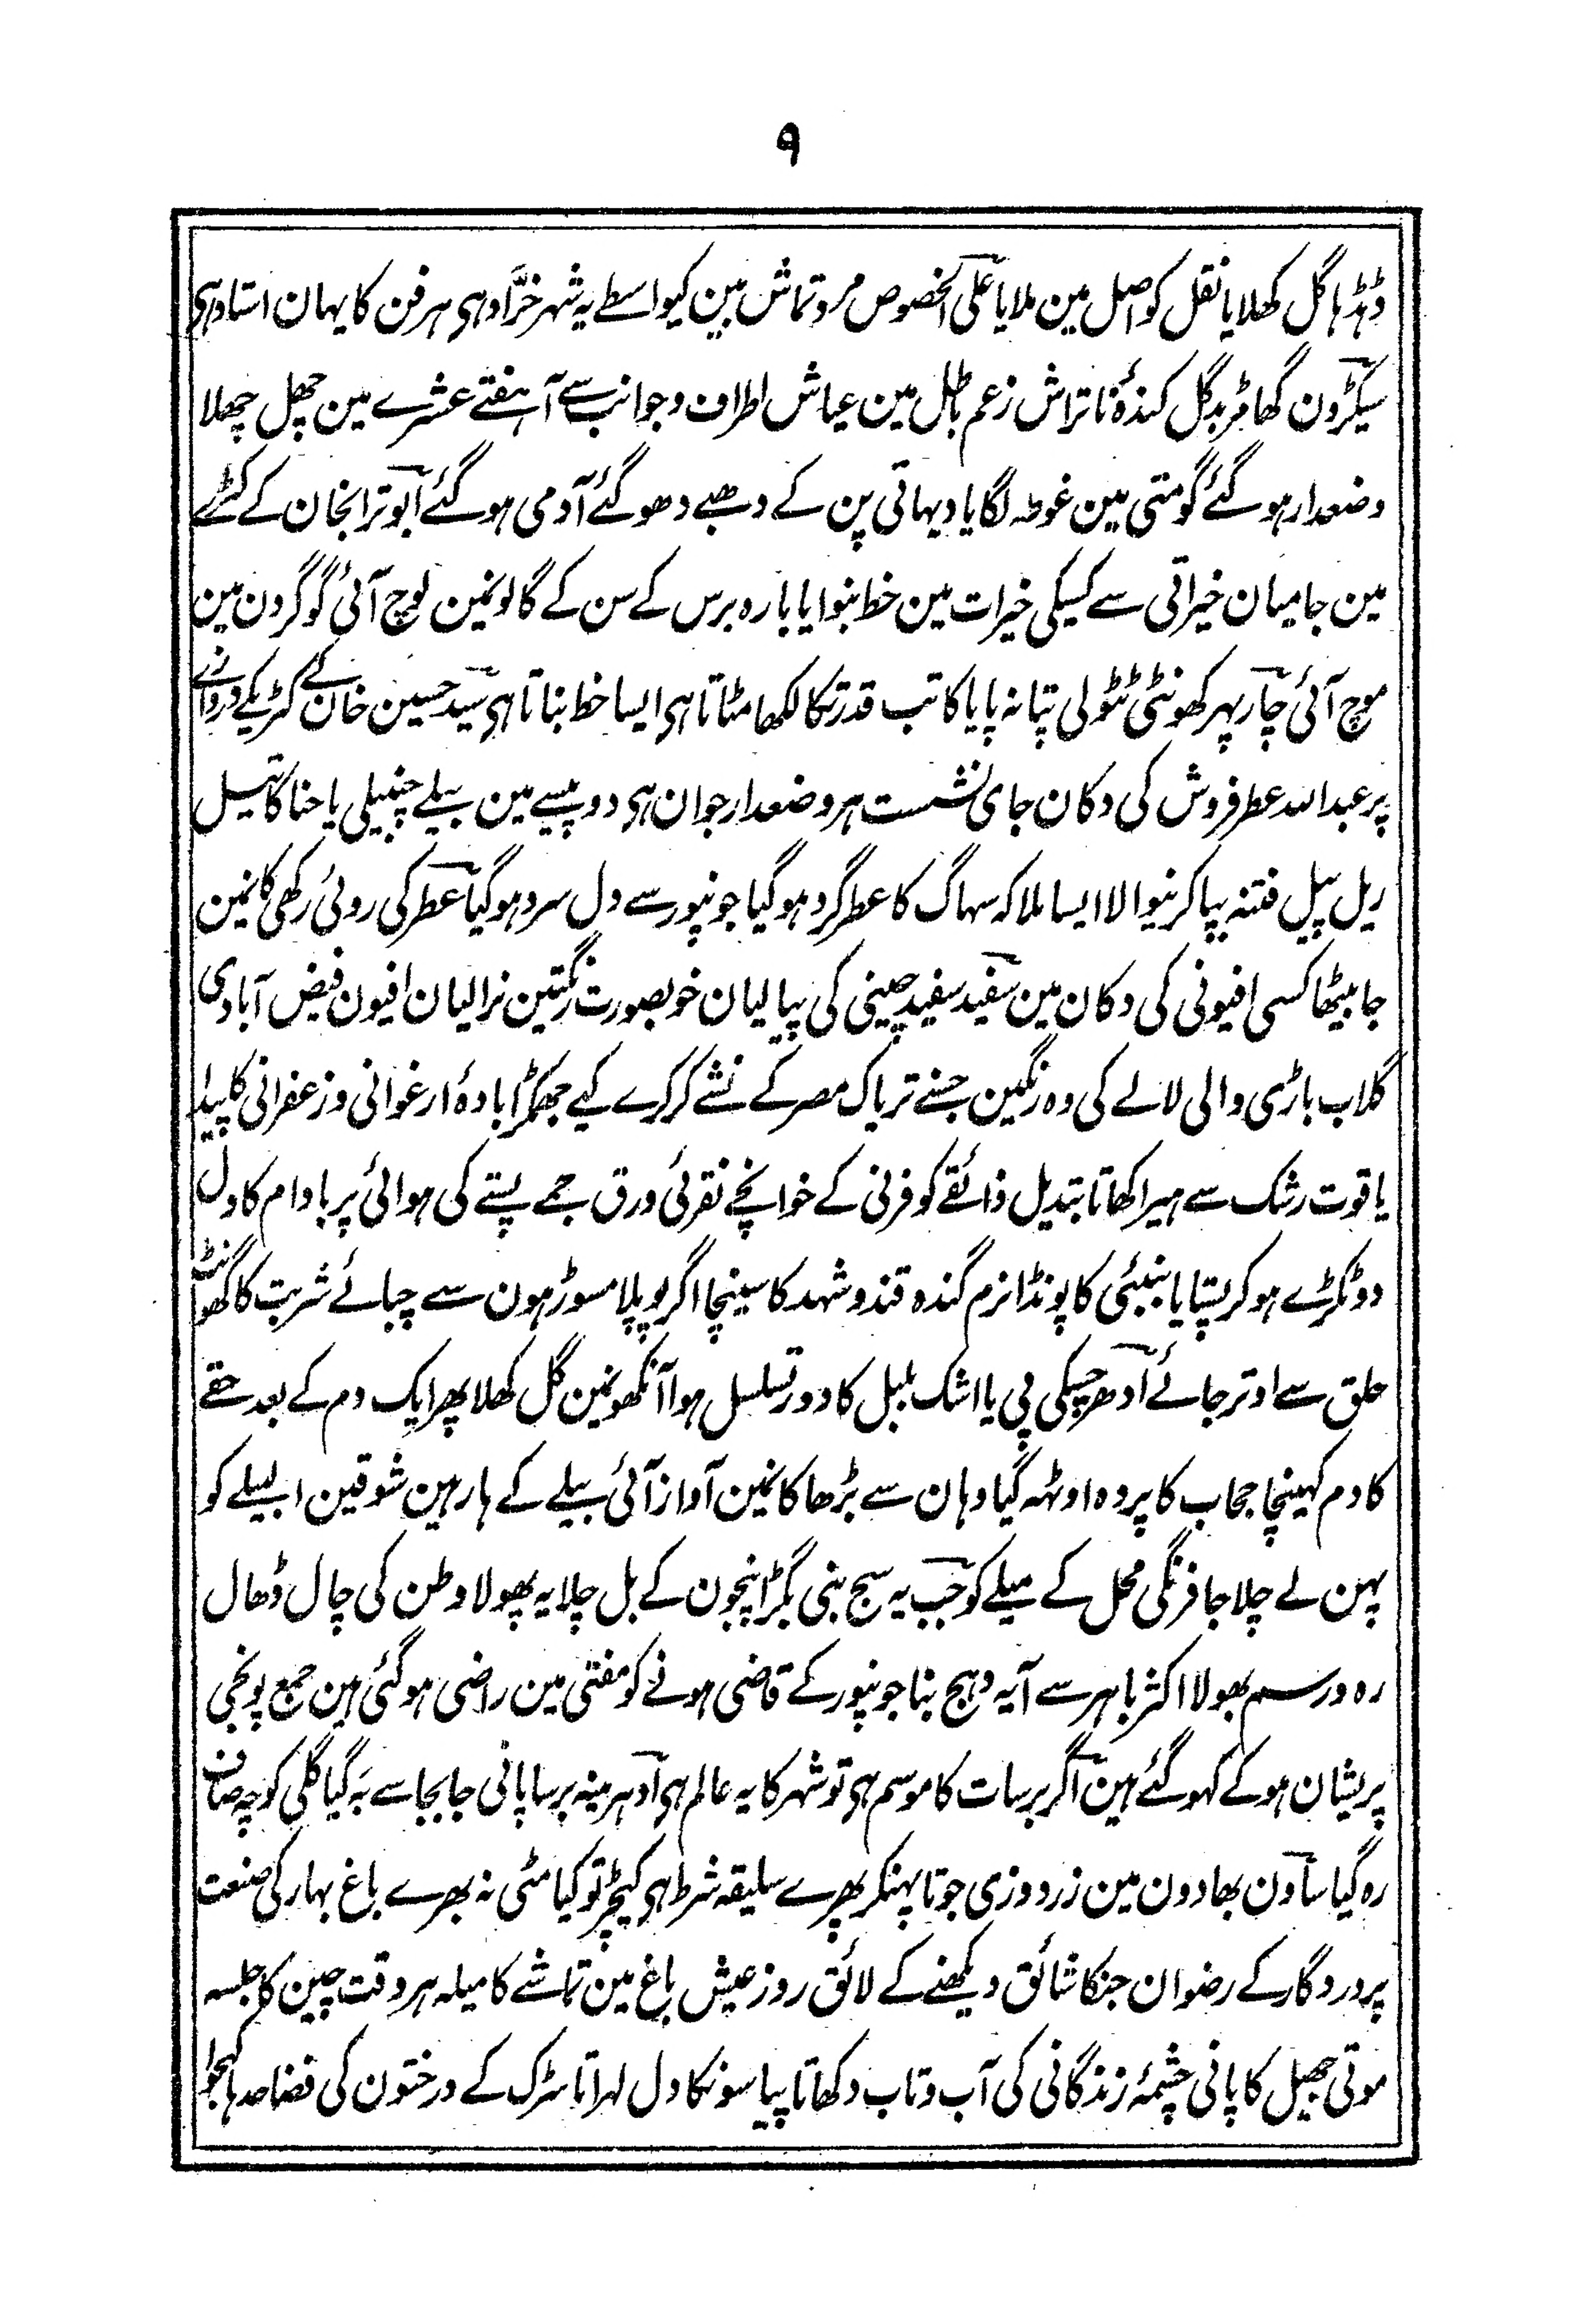 ۹
ڈہڈہا گل کھلایا نقل کو اصل مین ملایا علی الخصوص مرد تماش بین کیواسطے یہ شہر خرّاد ہی ہر فن کا یہان استاد ہی
سیکڑون گھامڑ بدگل کندۂ ناتراش زعم باطل مین عیاش اطراف و جوانب سے آ ہفتے عشرے مین چھل چھلا
وضعدار ہو گئے گومتی مین غوطہ لگایا دیہاتی پن کے دھبے دھو گئے آدمی ہو گئے ابو ترابخان کے کٹرے
مین جا میان خیراتی سے کسیکی خیرات مین خط بنوایا بارہ برس کے سن کے گالونمین لوچ آئی گو گردن مین
موچ آئی چار پہر کھونٹی ٹٹولی پتا نہ پایا کاتب قدرتکا لکھا مٹاتا ہی ایسا خط بناتا ہی سید حسین خان کے کٹریکے دروازے
پر عبد اللہ عطر فروش کی دکان جای نشست ہر وضعدار جوان ہی دو پیسے مین بیلے چنبیلی یا حنا کا تیل
ریل پیل فتنہ بپا کرنیوالا ایسا ملا کہ سہاگ کا عطر گرد ہو گیا جونپور سے دل سرد ہو گیا عطر کی روئی رکھی کانمین
جا بیٹھا کسی افیونی کی دکان مین سفید سفید چینی کی پیالیان خوبصورت رنگتین نرالیان افیون فیض آبادی
گلاب باڑی والی لالے کی وہ رنگین جسنے تریاک مصر کے نشے کرکرے کیے جھمکڑا بادۂ ارغوانی و زعفرانی کا پیدا
یاقوت رشک سے ہیرا کھاتا تبدیل ذائقے کو فرنی کے خوانچے نقرئی ورق جمے پستے کی ہوائی پر بادام کا دل
دو ٹکڑے ہو کر پستایا بنبئی کا پونڈا نرم گندہ قند و شہد کا سینچا اگر پوپلا مسوڑہون سے چبائے شربت کا گھونٹ
حلق سے اوتر جائے اُدھر چسکی پی یا اشک بلبل کا دور تسلسل ہوا آنکھونمین گل کھلا پھر ایک دم کے بعد حقے
کا دم کھینچا حجاب کا پردہ اوٹھہ گیا وہان سے بڑھا کانمین آواز آئی بیلے کے ہار ہین شوقین البیلے کو
پہن لے چلا جا فرنگی محل کے میلے کو جب یہ سج بنی بگڑا پنجون کے بل چلا یہ پھولا وطن کی چال ڈھال
رہ و رسم بھولا اکثر باہر سے آ یہ دہج بنا جونپور کے قاضی ہونے کو مفتی مین راضی ہو گئی ہین جمع پونجی
پریشان ہو کے کہو گئے ہین اگر برسات کا موسم ہی تو شہر کا یہ عالم ہی اُدہر مینہ برسا پانی جابجا سے بَہ گیا گلی کوچہ صاف
رہ گیا ساون بھادون مین زردوزی جوتا پہنکر پھرے سلیقہ شرط ہی کیچڑ تو کیا مٹی نہ بھرے باغ بہار کی صنعت
پروردگار کے رضوان جنکا شائق دیکھنے کے لائق روز عیش باغ مین تماشے کا میلہ ہر وقت چین کا جلسہ
موتی جھیل کا پانی چشمۂ زندگانی کی آب و تاب دکھاتا پیاسونکا دل لہراتا سڑک کے درختون کی فضا صدہا